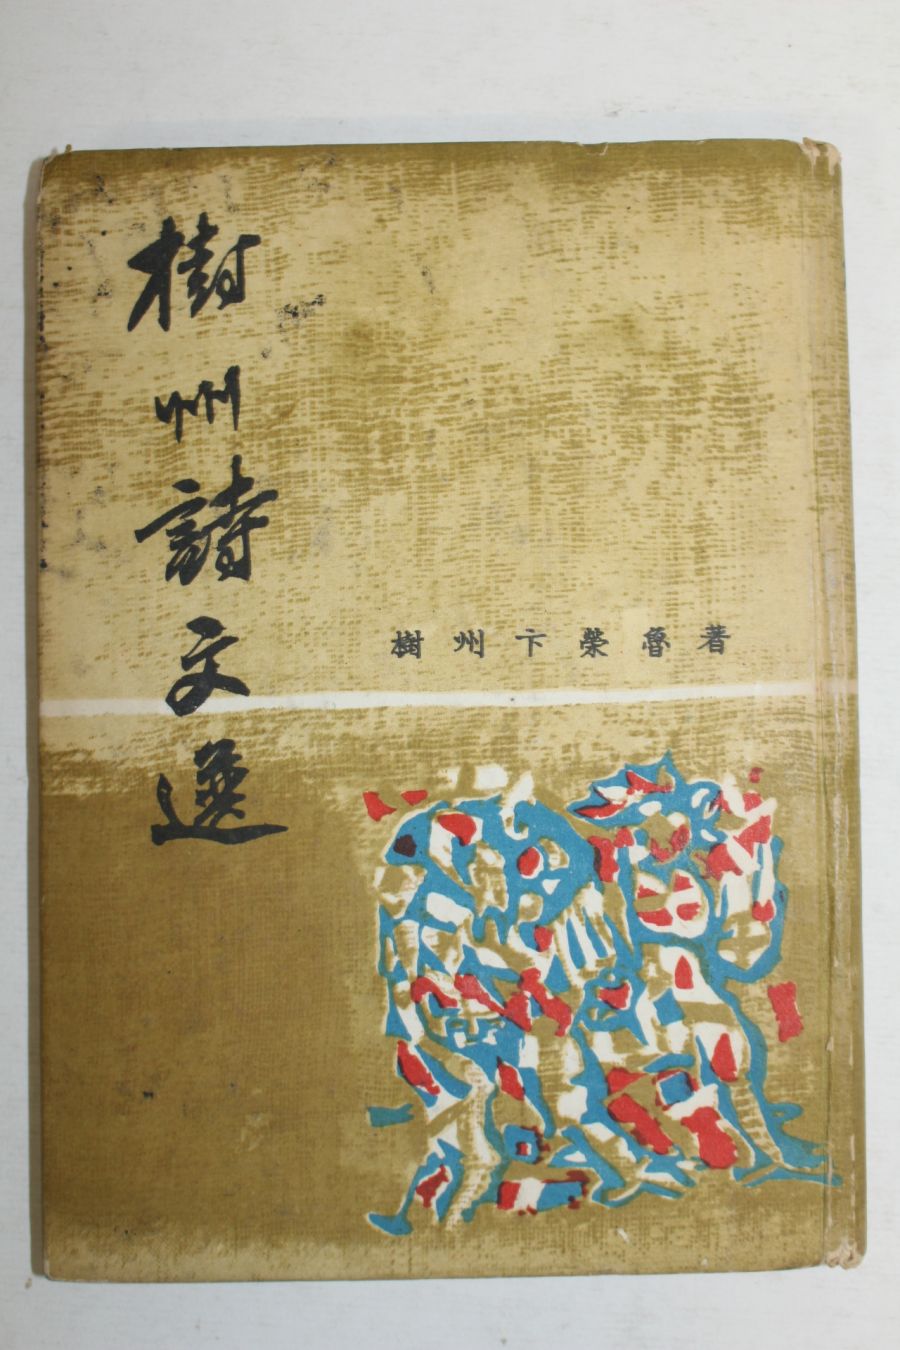 樹州詩文選
樹州 卞榮魯 著